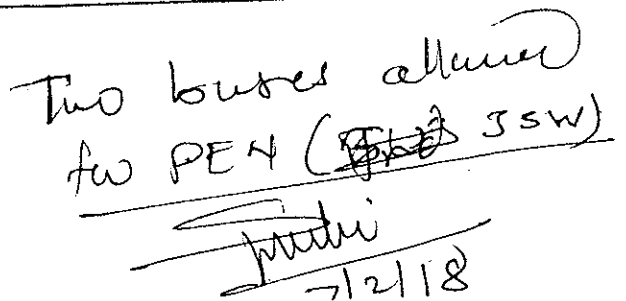 Two buses allowed
for PEN (JSW)
7/2/18